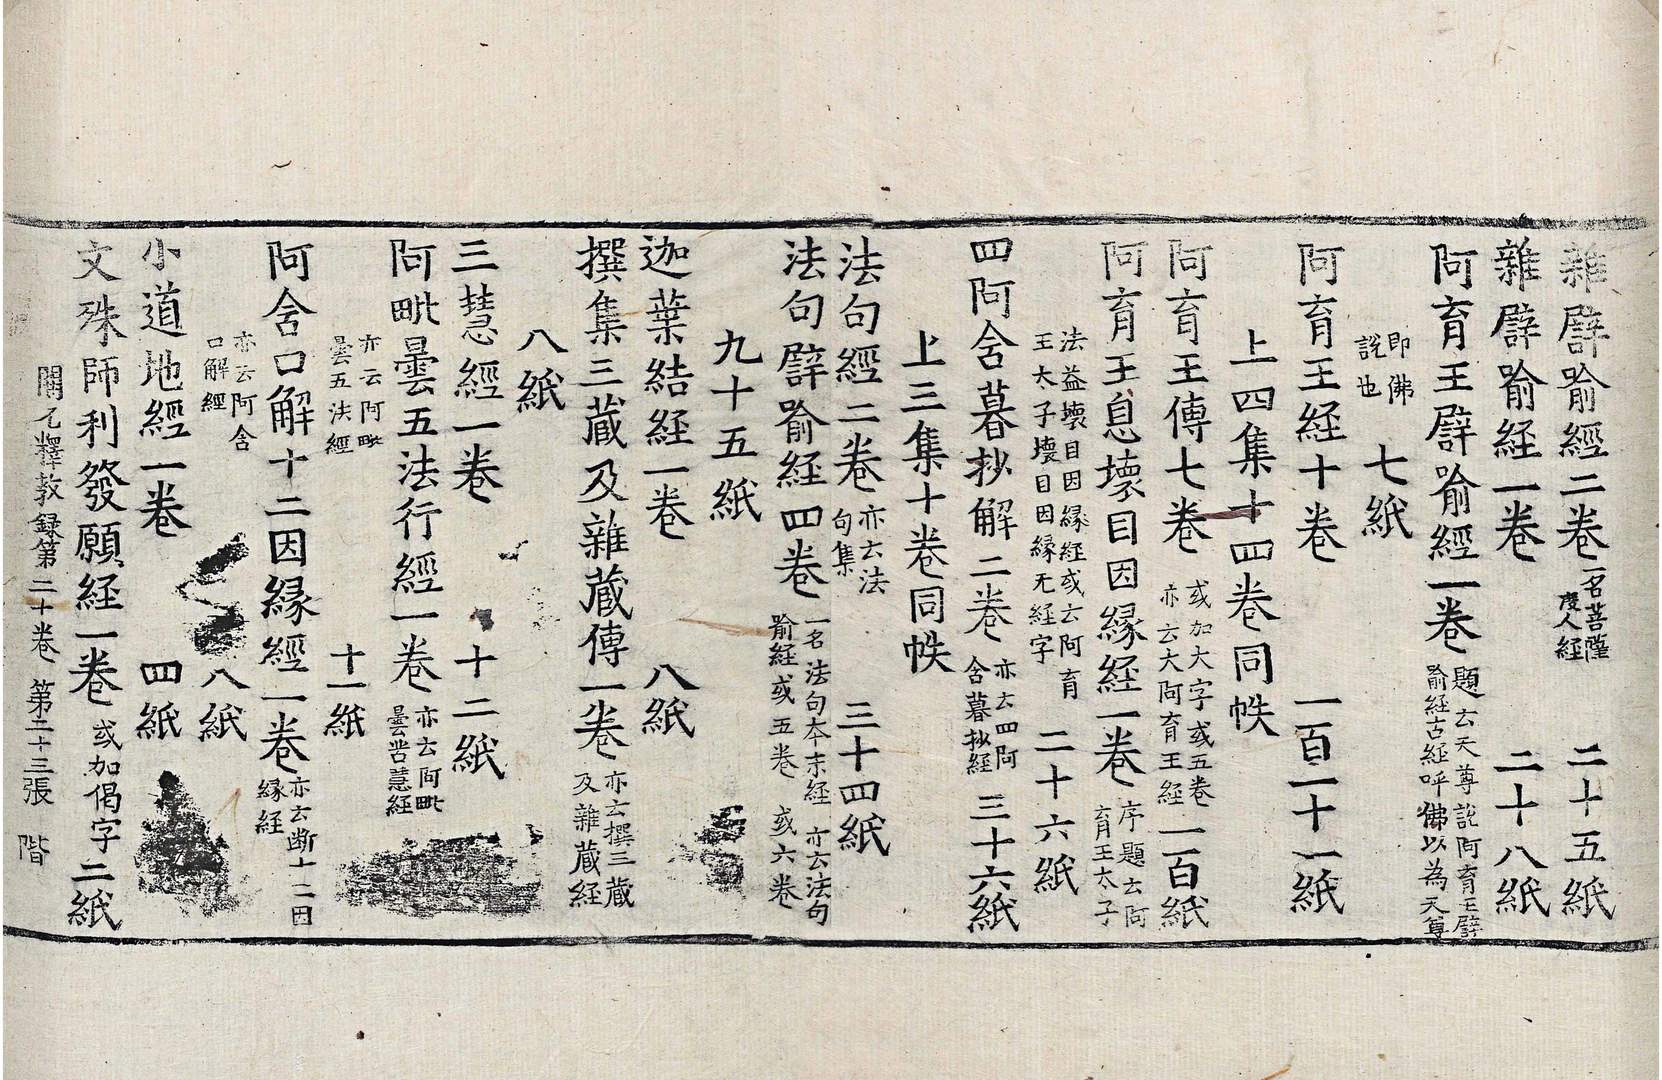 雜譬喻經二卷 一名菩薩度人經 二十五紙
雜譬喻経一卷 二十八紙
阿育王譬喻經一卷 題云天尊説阿育王譬喻經古経呼佛以為天尊
即佛説也 七紙
阿育王経十卷 一百二十一紙
上四集十四卷同帙
阿育王傳七卷 或加大字或五卷亦云大阿育王経 一百紙
阿育王息壞目因緣経一卷 序題云阿育王太子
法益壞目因緣経或云阿育王太子壞目因緣无経字 二十六紙
四阿含暮抄解二卷 亦云四阿含暮抄経 三十六紙
上三集十卷同帙
法句經二卷 亦云法句集 三十四紙
法句譬喻経四卷 一名法句本末経亦云法句喻経或五卷或六卷
九十五紙
迦葉結経一卷 八紙
撰集三藏及雜藏傳一卷 亦云撰三藏及雜藏経
八紙
三慧經一卷 十二紙
阿毗曇五法行經一卷 亦云阿毗曇苦慧経
亦云阿毗曇五法經 十一紙
阿含口解十二因緣經一卷 亦云断十二因緣経
亦云阿含口解經 八紙
小道地經一卷 四紙
文殊師利發願経一卷 或加偈字 二紙
開元釋教録第二十卷 第二十三張 階